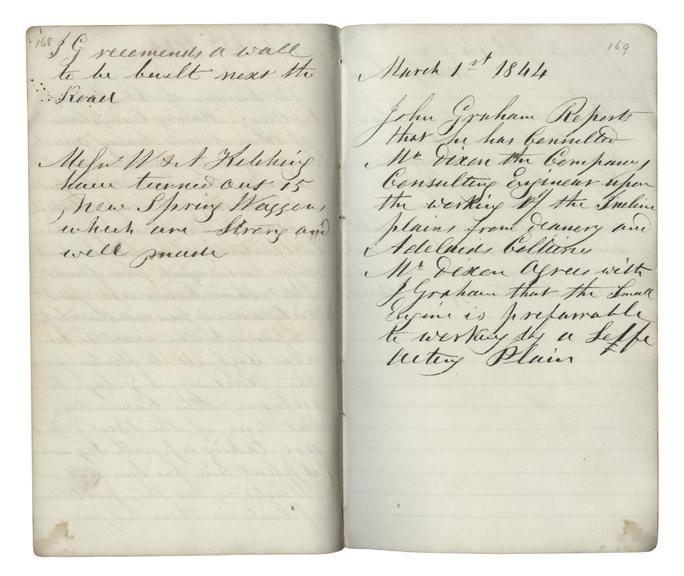 168
J G recomends a wall
to be built next the
Road
Messrs W & A Kitching
have turned out 15
New Spring Waggons
which are Strong and
well made
169
March 1st 1844
John Graham Reports
that he has Consulted
Mr Dixon the Companys
Consulting Engineer upon
the working of the Incline
plains from deanery and
Adelaids Colliery
Mr Dixon Agrees with
J Graham that the Small
Engine is preferrable
to working by a Selfe
Acting Plain